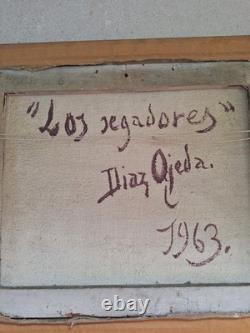 "Los segadores"
Diaz Ojeda.
1963.
ebay